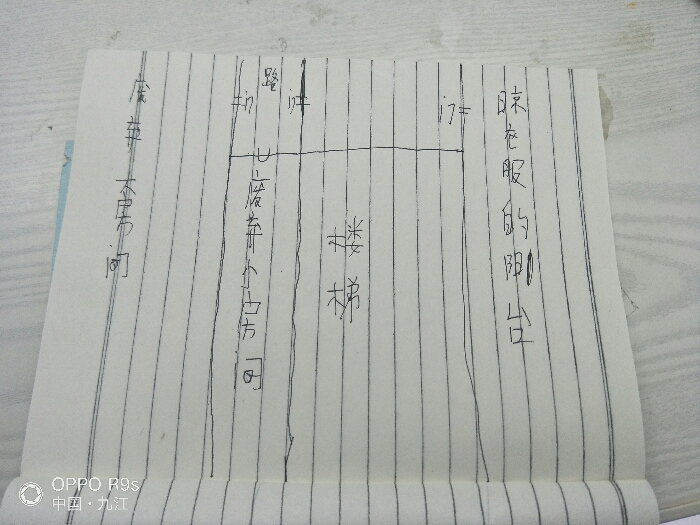 废弃大房间
路
废弃小房间
楼梯
晾衣服的阳台
OPPO R9s
中国·九江